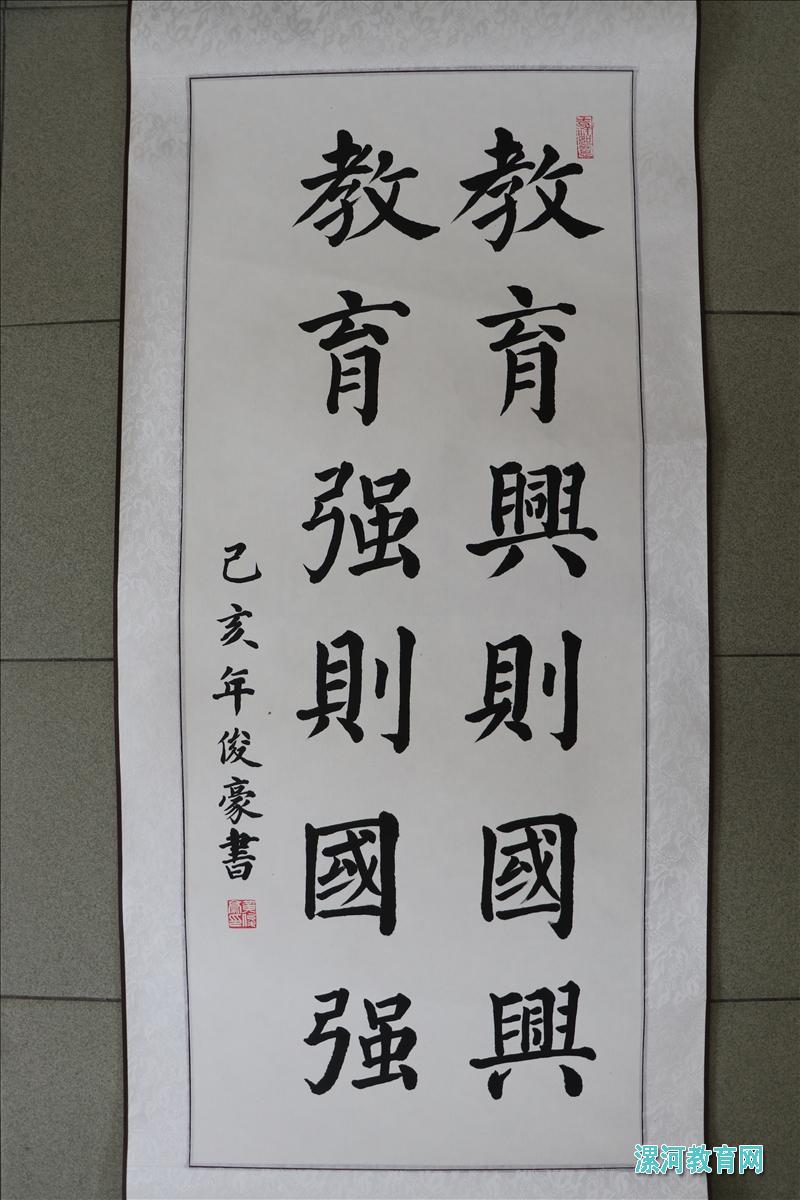 教育興則國興
教育强則國强
己亥年俊豪書
漯河教育网